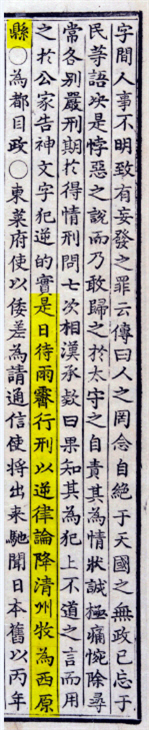 字間人事不明致有妄發之罪云傳曰人之罔念自絶于天國之無政已忘于
民等語決是悖惡之說而乃敢歸之於太守之自責其為情狀誠極痛惋除尋
常各別嚴刑期於得情刑問七次相漢承款曰果知其為犯上不道之言而用
之於公家告神文字犯逆的實是日待雨霽行刑以逆律論降清州牧為西原
縣○為都目政○東萊府使以倭差為請通信使將出來馳聞日本舊以丙年